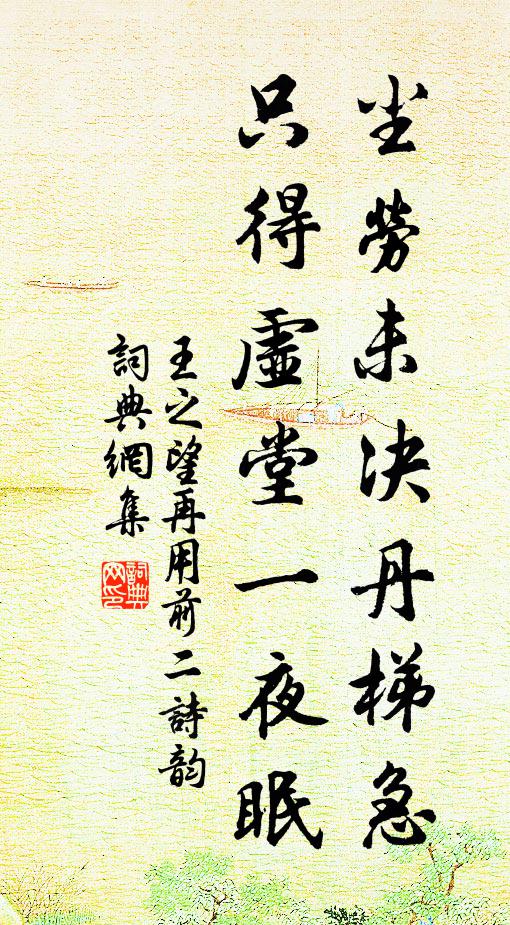 坐勞未決丹梯急
只得虛堂一夜眠
王之望再用前二詩韵
詞典網集
詞典网印